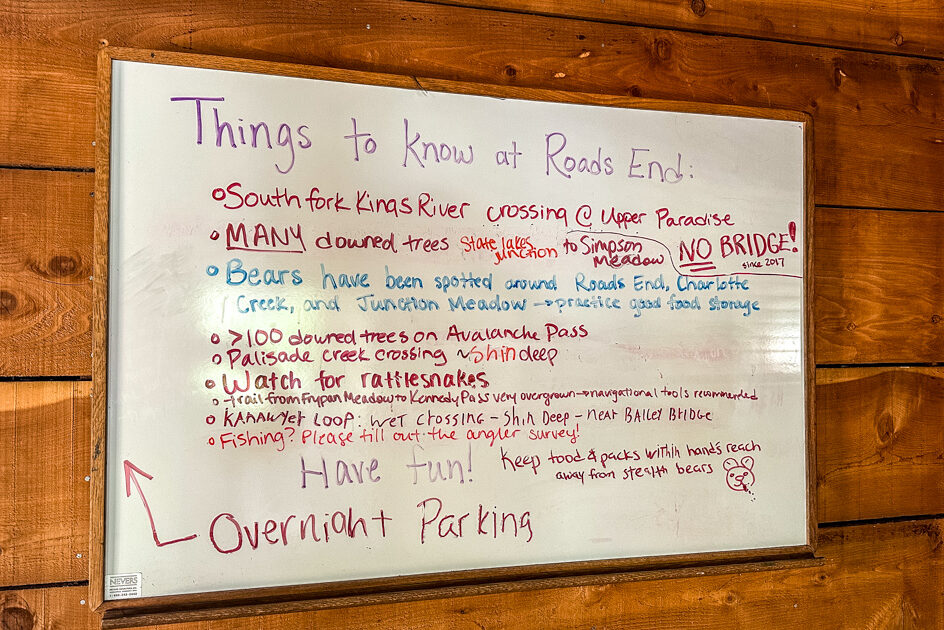 Things to Know at Roads End:
South fork Kings River crossing @ Upper Paradise
NO BRIDGE!
since 2017
MANY downed trees State Lakes Junction to Simpson Meadow
Bears have been spotted around Roads End, Charlotte
Creek, and Junction Meadow → practice good food storage
>100 downed trees on Avalanche Pass
Palisade creek crossing ~shin deep
Watch for rattlesnakes
-trail from Frypan Meadow to Kennedy Pass very overgrown → navigational tools recommended
KAAAWyet Loop: wet crossing - Shin Deep - near Bailey Bridge
Fishing? Please fill out the angler survey!
Have fun!
Keep food & packs within hand's reach
away from stealth bears
Overnight Parking
NEVERS